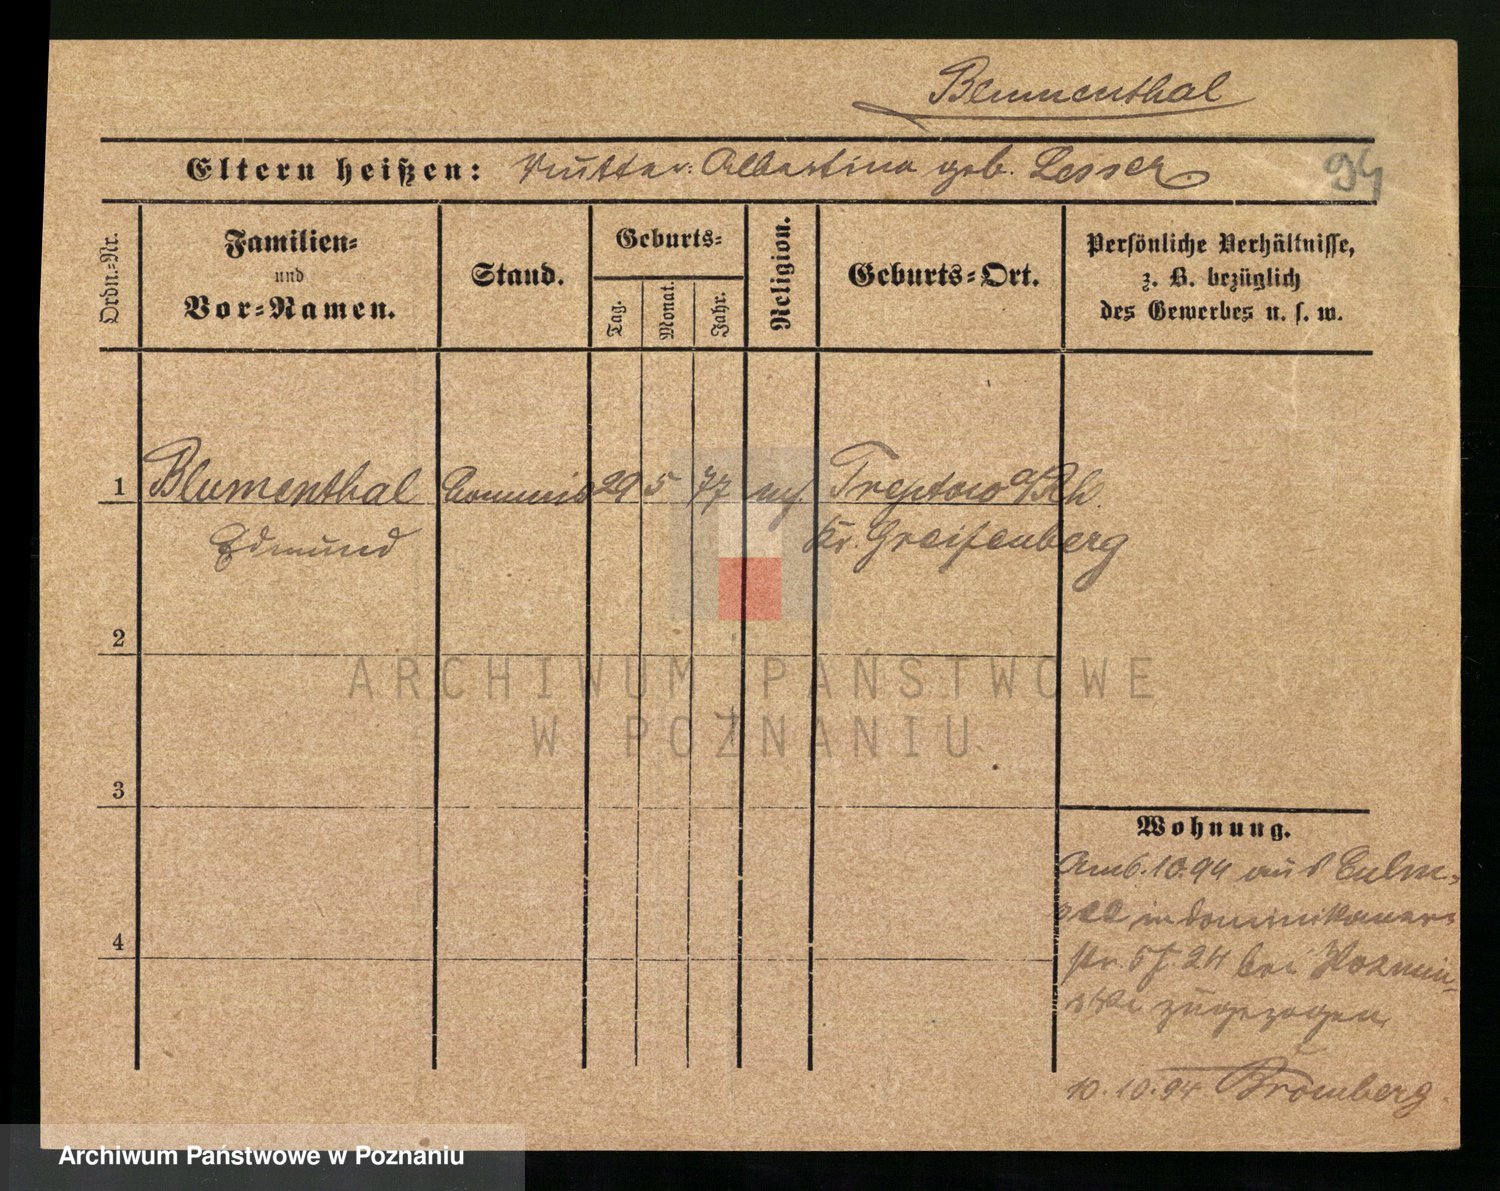 Blumenthal
Eltern heißen: Mutter: Albertine geb. Lesser
94
Ordn.-Nr.
Familien-
und
Vor-Namen.
Stand.
Geburts-
Tag.
Monat.
Jahr.
Religion.
Geburts-Ort.
Persönliche Verhältnisse,
z. B. bezüglich
des Gewerbes u. s. w.
1 Blumenthal Commis 29 5 77 Treptow a/Rh.
Edmund Kr. Greifenberg
2
3
4
Wohnung.
Am 6.10.94 aus Culm-
see in Dominikaner-
str. 5 24 bei Kozmin-
ski zugezogen.
10.10.94 Bromberg.
ARCHIWUM PAŃSTWOWE
W POZNANIU
Archiwum Państwowe w Poznaniu